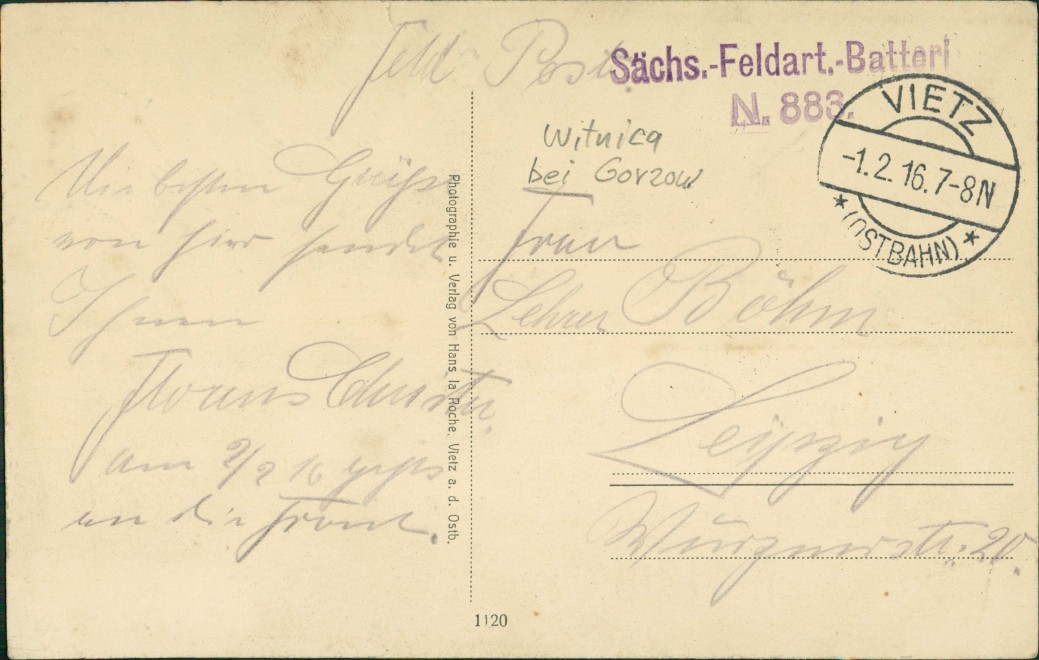 Feld Post
Sächs.-Feldart.-Batteri
N. 883.
VIETZ
-1.2.16.7-8N
* (OSTBAHN) *
Witnica
bei Gorzow
Die besten Grüße
von hier sendet
Ihnen
am 2/2 16 gehts
an die Front.
Photographie u. Verlag von Hans la Roche, Vietz a. d. Ostb.
Frau
Lehrer Böhm
Leipzig
Wurznerstr. 20.
1120